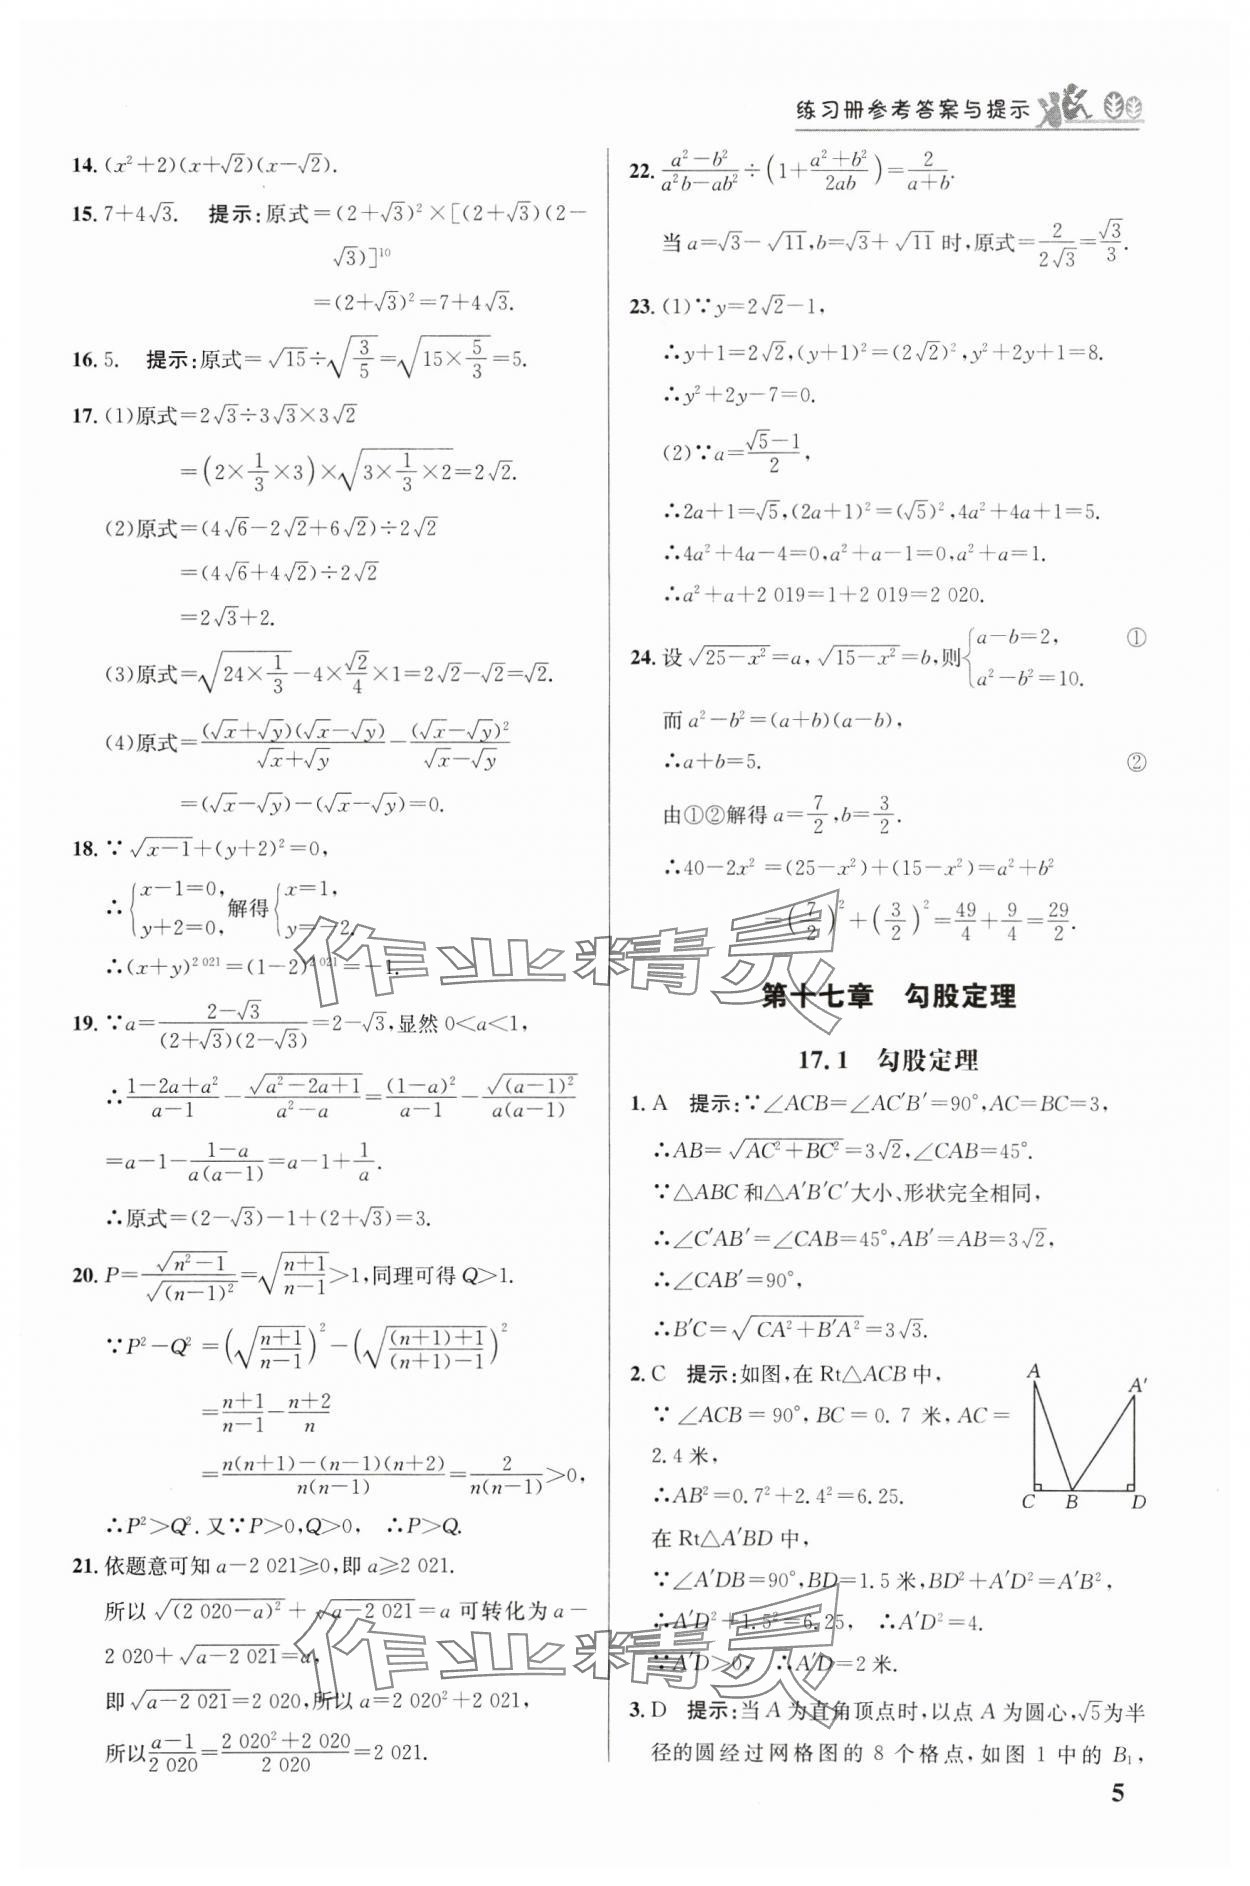 练习册参考答案与提示
14. (x²+2)(x+√2)(x-√2).
15. 7+4√3. 提示:原式=(2+√3)²×[(2+√3)(2-
√3)]¹⁰
=(2+√3)²=7+4√3.
16. 5. 提示:原式=√15÷√(3/5)=√(15×5/3)=5.
17. (1)原式=2√3÷3√3×3√2
=(2×1/3×3)×√(3×1/3×2)=2√2.
(2)原式=(4√6-2√2+6√2)÷2√2
=(4√6+4√2)÷2√2
=2√3+2.
(3)原式=√(24×1/3)-4×√2/4×1=2√2-√2=√2.
(4)原式=(√x+√y)(√x-√y)/(√x+√y)-(√x-√y)²/(√x-√y)
=(√x-√y)-(√x-√y)=0.
18. ∵√(x-1)+(y+2)²=0,
∴{x-1=0, y+2=0, 解得{x=1, y=-2.
∴(x+y)²⁰²¹=(1-2)²⁰²¹=-1.
19. ∵a=(2-√3)/((2+√3)(2-√3))=2-√3,显然 0<a<1,
∴(1-2a+a²)/(a-1)-√(a²-2a+1)/(a²-a)=(1-a)²/(a-1)-√((a-1)²)/(a(a-1))
=a-1-(1-a)/(a(a-1))=a-1+1/a.
∴原式=(2-√3)-1+(2+√3)=3.
20. P=√(n²-1)/√((n-1)²)=√((n+1)/(n-1))>1,同理可得 Q>1.
∵P²-Q²=(√((n+1)/(n-1)))²-(√(((n+1)+1)/((n+1)-1)))²
=(n+1)/(n-1)-(n+2)/n
=(n(n+1)-(n-1)(n+2))/(n(n-1))=2/(n(n-1))>0,
∴P²>Q².又∵P>0,Q>0, ∴P>Q.
21. 依题意可知 a-2 021≥0,即 a≥2 021.
所以√((2 020-a)²)+√(a-2 021)=a 可转化为 a-
2 020+√(a-2 021)=a,
即√(a-2 021)=2 020,所以 a=2 020²+2 021,
所以(a-1)/2 020=(2 020²+2 020)/2 020=2 021.
22. (a²-b²)/(a²b-ab²)÷(1+(a²+b²)/2ab)=2/(a+b).
当 a=√3-√11,b=√3+√11 时,原式=2/(2√3)=√3/3.
23. (1)∵y=2√2-1,
∴y+1=2√2,(y+1)²=(2√2)²,y²+2y+1=8.
∴y²+2y-7=0.
(2)∵a=(√5-1)/2,
∴2a+1=√5,(2a+1)²=(√5)²,4a²+4a+1=5.
∴4a²+4a-4=0,a²+a-1=0,a²+a=1.
∴a²+a+2 019=1+2 019=2 020.
24. 设√(25-x²)=a,√(15-x²)=b,则{a-b=2, ① a²-b²=10.
而 a²-b²=(a+b)(a-b),
∴a+b=5. ②
由①②解得 a=7/2,b=3/2.
∴40-2x²=(25-x²)+(15-x²)=a²+b²
=(7/2)²+(3/2)²=49/4+9/4=29/2.
第十七章 勾股定理
17.1 勾股定理
1. A 提示:∵∠ACB=∠AC′B′=90°,AC=BC=3,
∴AB=√(AC²+BC²)=3√2,∠CAB=45°.
∵△ABC 和△A′B′C′大小、形状完全相同,
∴∠C′AB′=∠CAB=45°,AB′=AB=3√2,
∴∠CAB′=90°,
∴B′C=√(CA²+B′A²)=3√3.
2. C 提示:如图,在 Rt△ACB 中,
∵∠ACB=90°,BC=0.7 米,AC=
2.4 米,
∴AB²=0.7²+2.4²=6.25.
在 Rt△A′BD 中,
∵∠A′DB=90°,BD=1.5 米,BD²+A′D²=A′B²,
∴A′D²+1.5²=6.25, ∴A′D²=4.
∵A′D>0, ∴A′D=2 米.
A A′
C B D
3. D 提示:当 A 为直角顶点时,以点 A 为圆心,√5为半
径的圆经过网格图的 8 个格点,如图 1 中的 B₁,
5
作业精灵
作业精灵